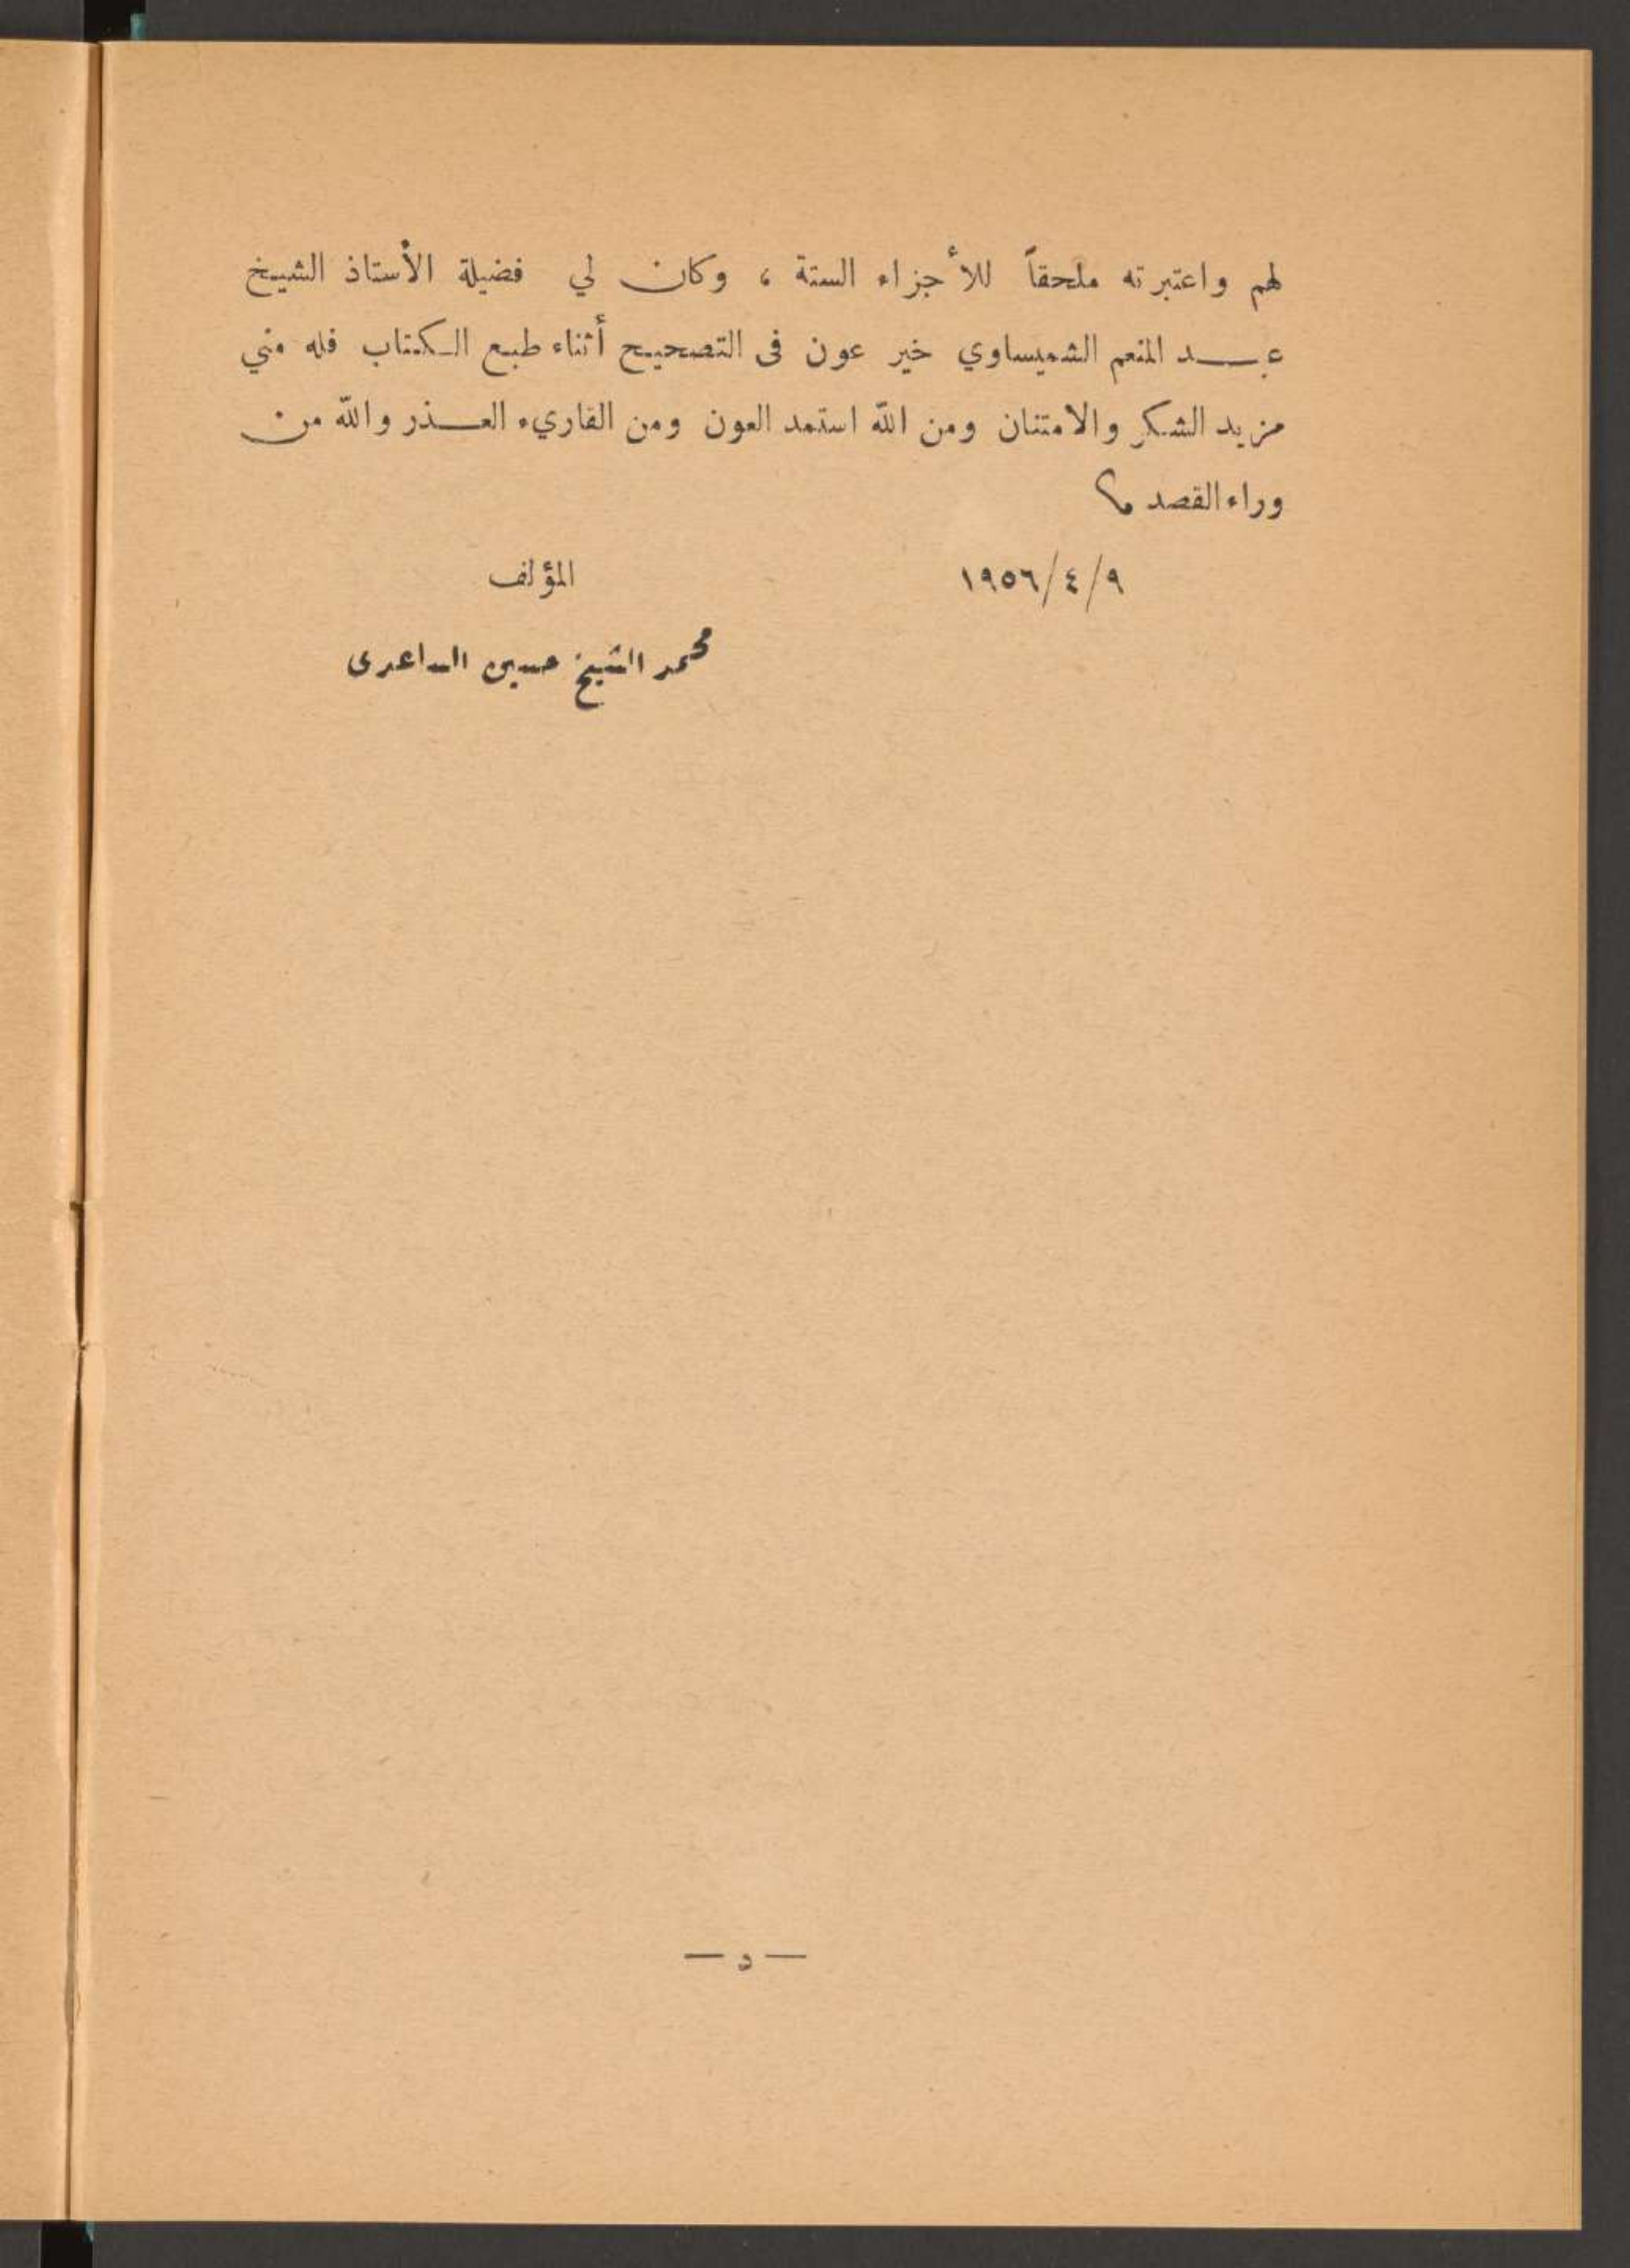 لهم واعتبرته ملحقاً للأجزاء الستة ، وكان لي فضيلة الأستاذ الشيخ
عبد المنعم الشميساوي خير عون فى التصحيح أثناء طبع الكتاب فله مني
مزيد الشكر والامتنان ومن الله استمد العون ومن القاريء العذر والله من
وراء القصد
١٩٥٦/٤/٩ المؤلف
محمد الشيخ حسين الساعدى
— د —